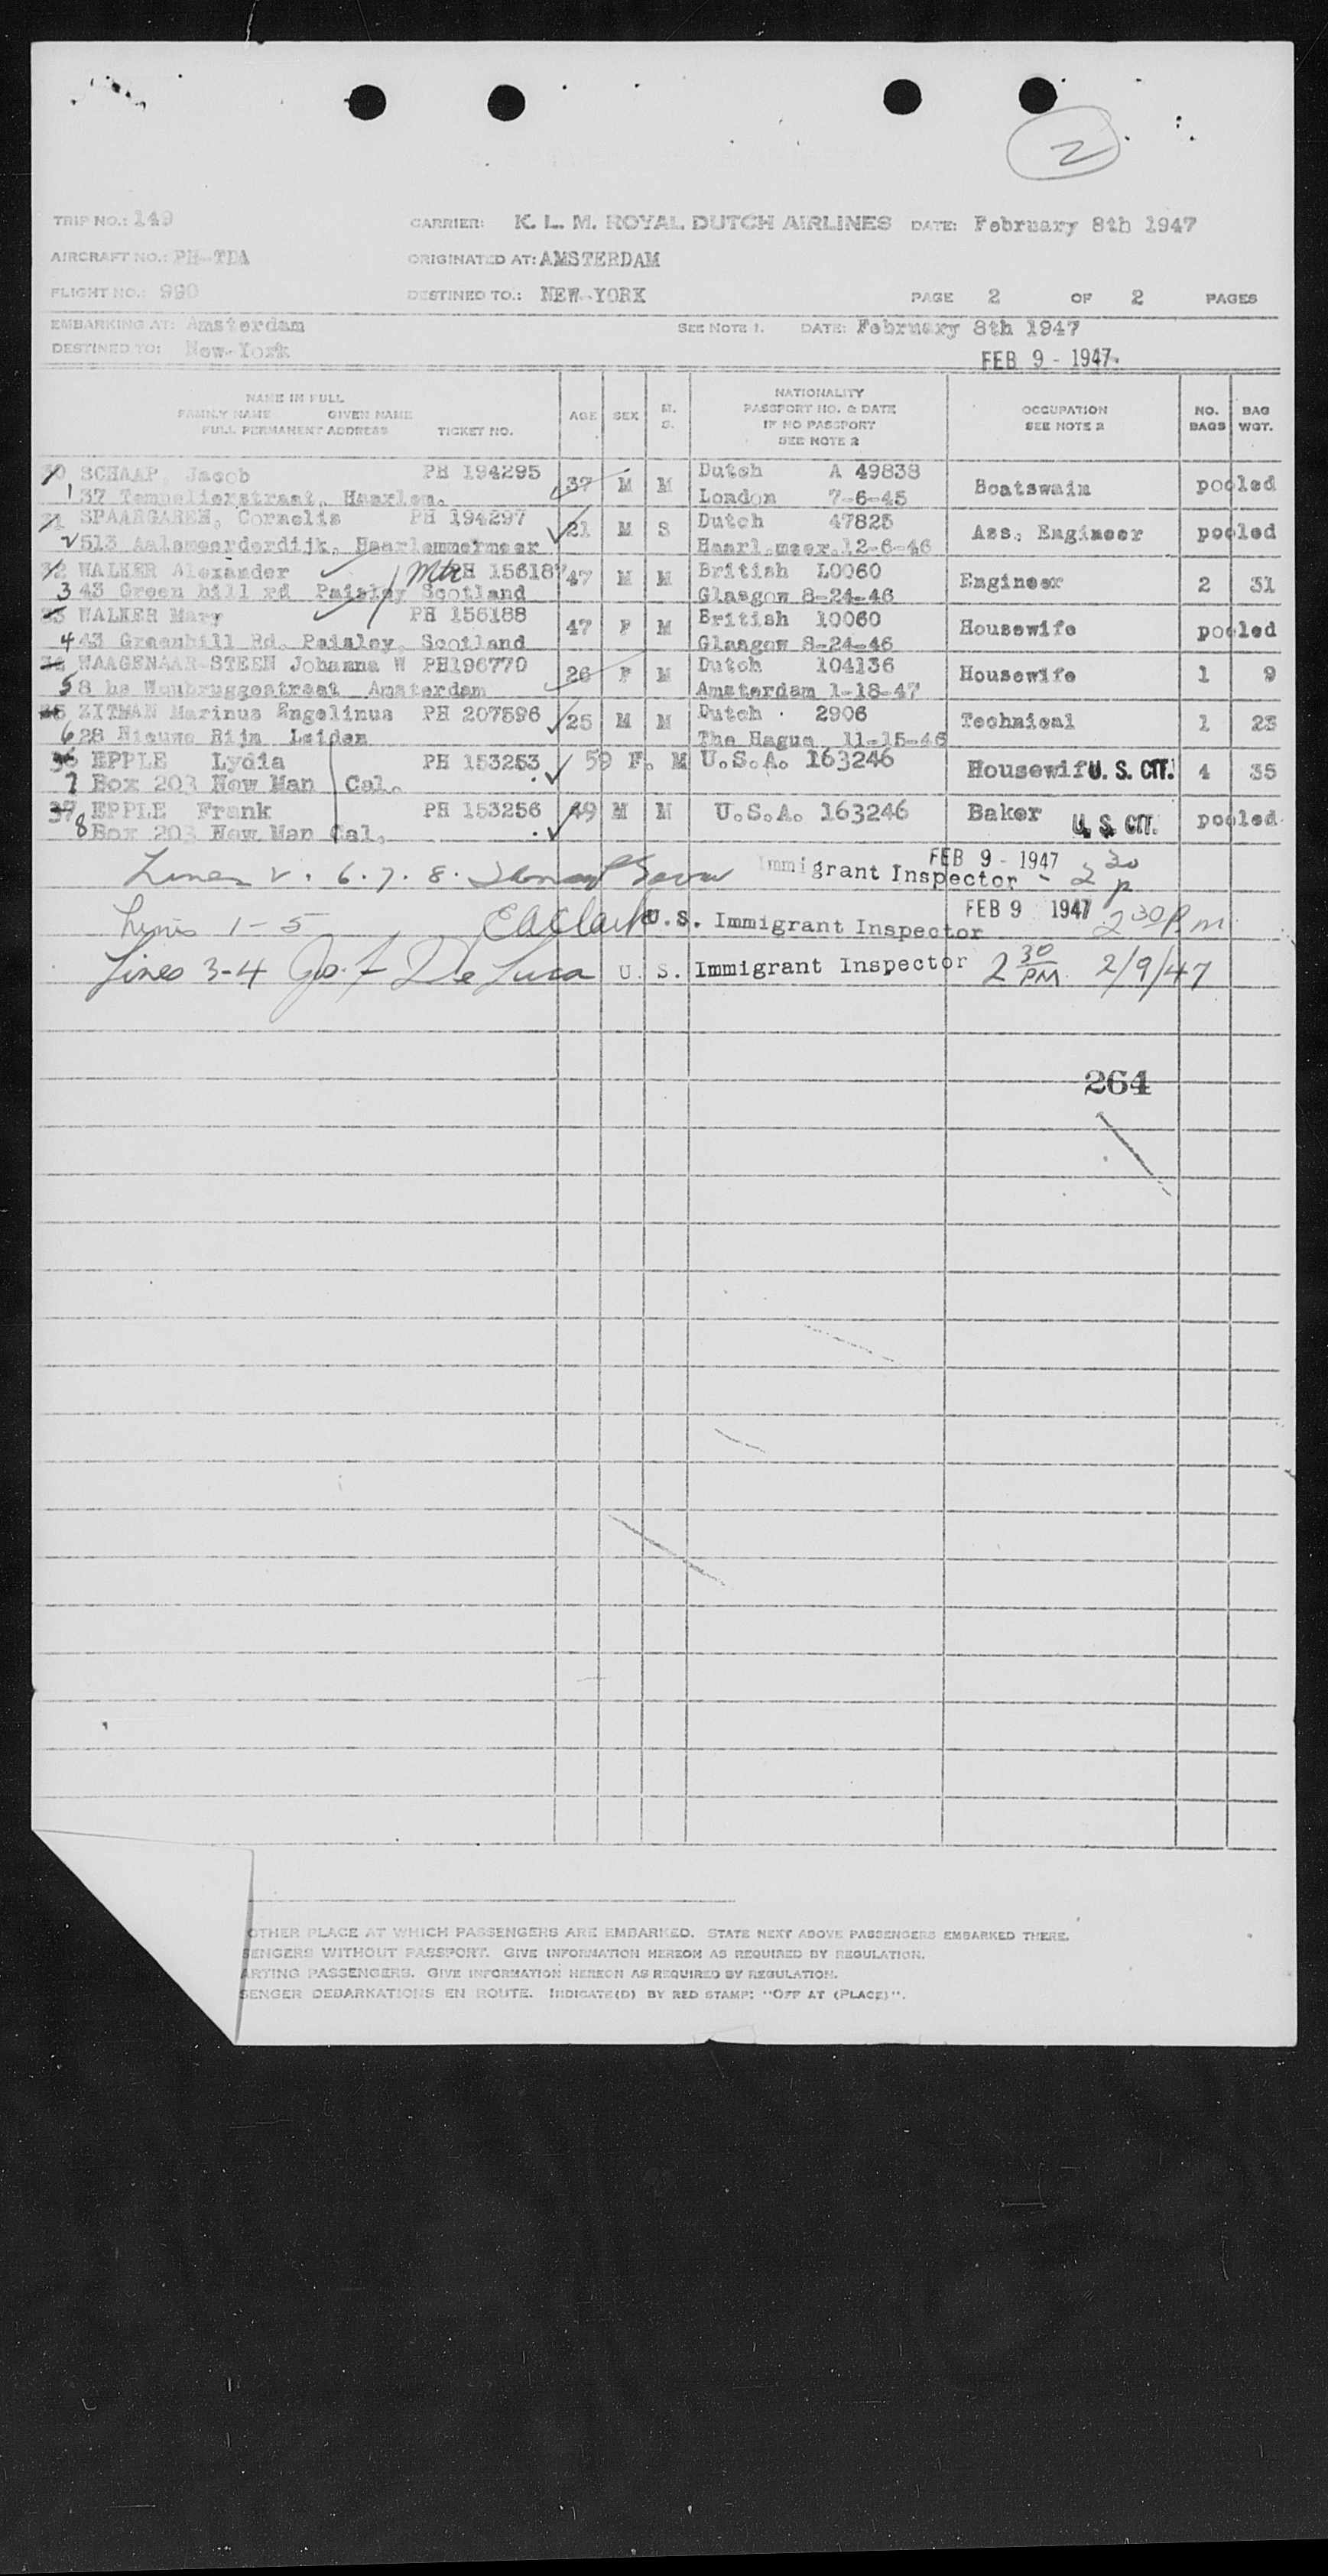 2
TRIP NO.: 149 CARRIER: K. L. M. ROYAL DUTCH AIRLINES DATE: February 8th 1947
AIRCRAFT NO.: PH-TDA ORIGINATED AT: AMSTERDAM
FLIGHT NO.: 990 DESTINED TO.: NEW-YORK PAGE 2 OF 2 PAGES
EMBARKING AT: Amsterdam SEE NOTE 1. DATE: February 8th 1947
DESTINED TO: New-York FEB 9 - 1947
NAME IN FULL
FAMILY NAME GIVEN NAME
FULL PERMANENT ADDRESS TICKET NO. AGE SEX M. S. NATIONALITY PASSPORT NO. & DATE IF NO PASSPORT SEE NOTE 2 OCCUPATION SEE NOTE 2 NO. BAGS BAG WGT.
30 SCHAAP, Jacob PH 194295 37 M M Dutch A 49838 Boatswain pooled
1 37 Tempelierstraat, Haarlem. London 7-6-45
31 SPAARGAREN, Cornelis PH 194297 21 M S Dutch 47825 Ass. Engineer pooled
2 513 Aalsmeerderdijk, Haarlemmermeer Haarl.meer.12-6-46
32 WALKER Alexander PH 156187 47 M M British L0060 Engineer 2 31
3 43 Green hill rd Paisley Scotland Glasgow 8-24-46
33 WALKER Mary PH 156188 47 F M British 10060 Housewife pooled
4 43 Greenhill Rd. Paisley, Scotland Glasgow 8-24-46
34 WAAGENAAR-STEEN Johanna W PH196770 26 F M Dutch 104136 Housewife 1 9
5 8 hs Amsterdam Amsterdam 1-18-47
35 ZITMAN Marinus Engelinus PH 207596 25 M M Dutch 2906 Technical 1 23
6 28 Nieuwe Rijn Leiden The Hague 11-15-46
36 EPPLE Lydia PH 153253 59 F. M U.S.A. 163246 Housewife U. S. CIT. 4 35
7 Box 203 New Man Cal.
37 EPPLE Frank PH 153256 49 M M U.S.A. 163246 Baker U. S. CIT. pooled
8 Box 203 New Man Cal.
Lines 2. 6. 7. 8. Immigrant Inspector FEB 9 - 1947 - 2 30 p
Lines 1-5 E A Clark U. S. Immigrant Inspector FEB 9 1947 2 30 P m
Lines 3-4 Jos. F De Luca U. S. Immigrant Inspector 2 30 PM 2/9/47
264
OTHER PLACE AT WHICH PASSENGERS ARE EMBARKED. STATE NEXT ABOVE PASSENGERS EMBARKED THERE.
SENGERS WITHOUT PASSPORT. GIVE INFORMATION HEREON AS REQUIRED BY REGULATION.
ARTING PASSENGERS. GIVE INFORMATION HEREON AS REQUIRED BY REGULATION.
SENGER DEBARKATIONS EN ROUTE. INDICATE(D) BY RED STAMP: "OFF AT (PLACE)".